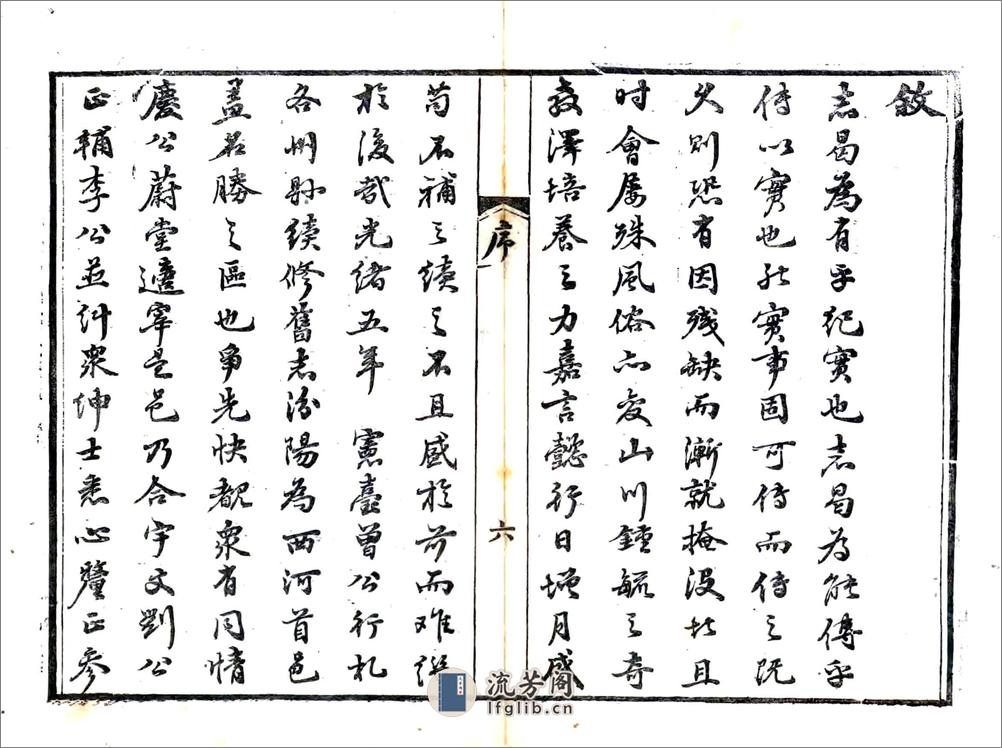 敘
志曷為有乎紀實也志曷為能傳乎
傳以實也然實事固可傳而傳之既
久則恐有因殘缺而漸就掩沒者且
時會屢殊風俗亦変山川鍾毓之奇
教澤培養之力嘉言懿行日增月盛
序
六
苟不補之續之不且盛於前而难繼
於後哉光緒五年 憲臺曾公行札
各州縣續修舊志汾陽為西河首邑
盖名勝之區也爭先快覩衆有同情
慶公蔚堂適宰是邑乃合宇文劉公
正輔李公並糾衆绅士悉心釐正参
流芳阁
lfglib.cn